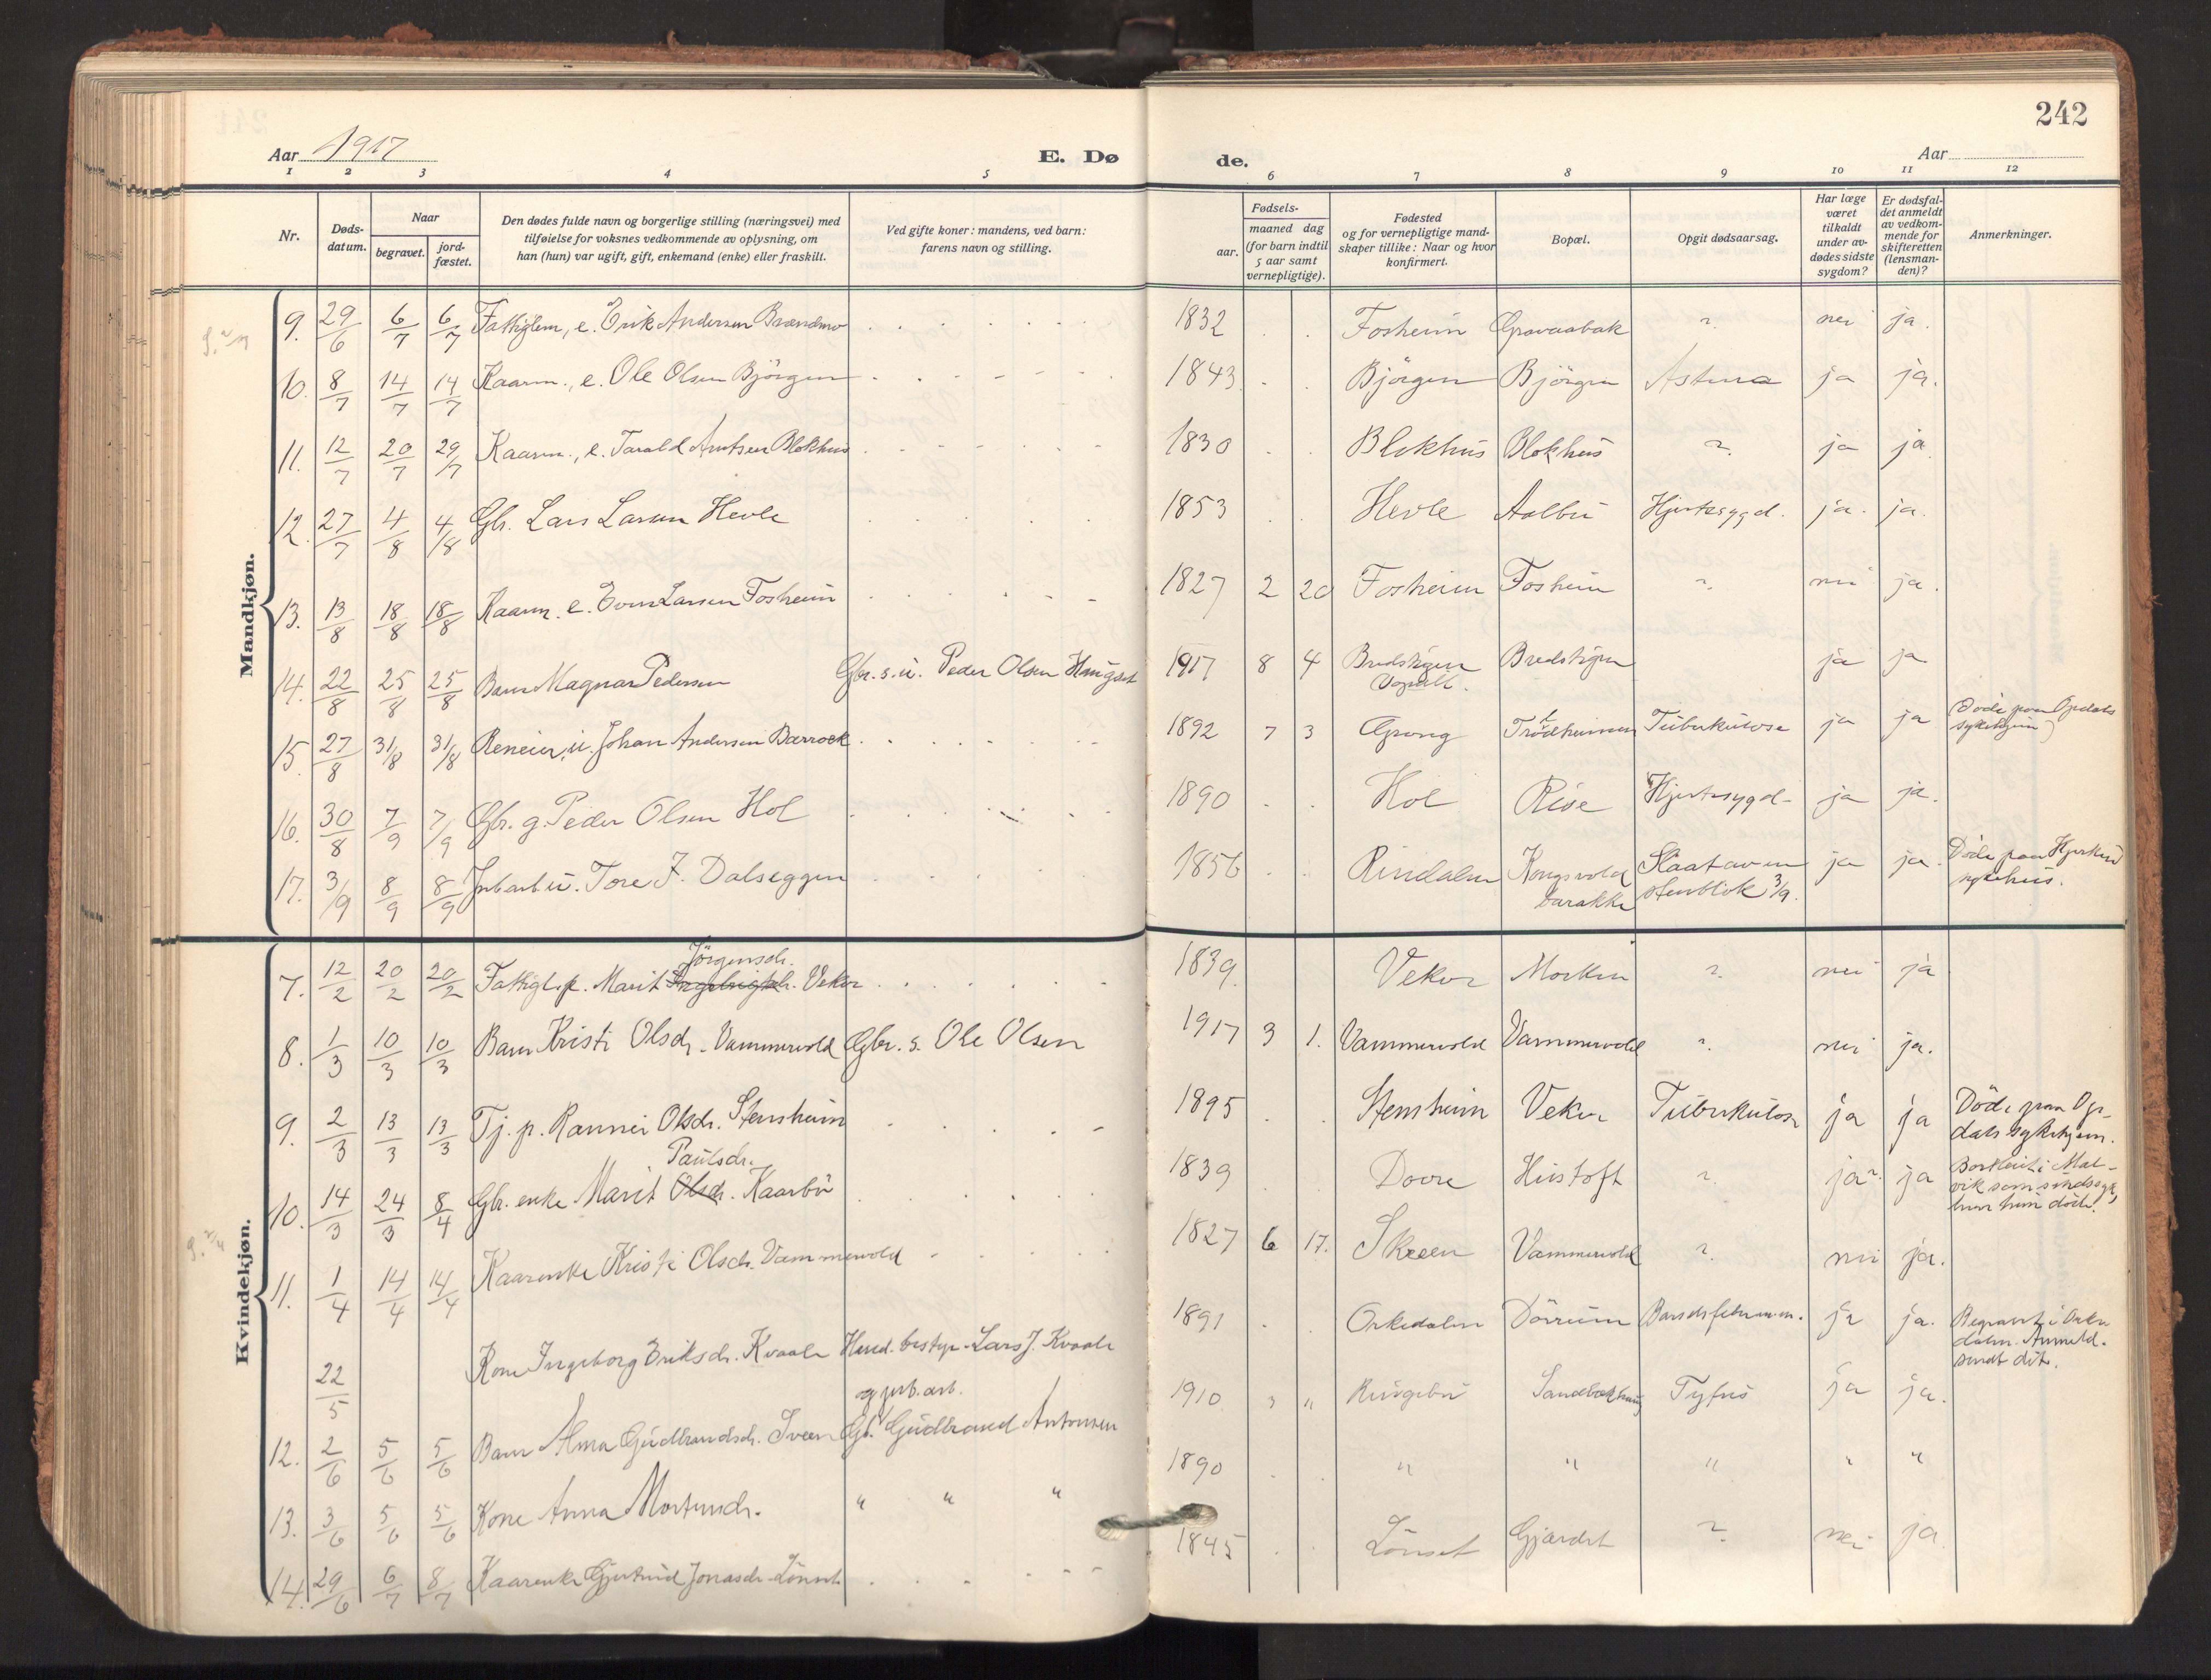 242
Aar 1917
E. Dø
de.
Aar
1 2 3 4 5 6 7 8 9 10 11 12
Nr.
Døds-
datum.
Naar
begravet.
jord-
fæstet.
Den dødes fulde navn og borgerlige stilling (næringsvei) med
tilføielse for voksnes vedkommende av oplysning, om
han (hun) var ugift, gift, enkemand (enke) eller fraskilt.
Ved gifte koner: mandens, ved barn:
farens navn og stilling.
Fødsels-
aar.
maaned dag
(for barn indtil
5 aar samt
vernepligtige).
Fødested
og for vernepligtige mand-
skaper tillike: Naar og hvor
konfirmert.
Bopæl.
Opgit dødsaarsag.
Har læge
været
tilkaldt
under av-
dødes sidste
sygdom?
Er dødsfal-
det anmeldt
av vedkom-
mende for
skifteretten
(lensman-
den)?
Anmerkninger.
Mandkjøn.
9. 29/6 6/7 6/7 Fattiglem, e. Erik Andersen Brændmo 1832 Fosheim Gravaabak ? nei ja.
10. 8/7 14/7 14/7 Kaarm., e. Ole Olsen Bjørgen 1843 Bjørgen Bjørgen Astma ja ja.
11. 12/7 20/7 29/7 Kaarm., e. Tarald Arntsen Blokhus 1830 Blokhus Blokhus ? ja ja
12. 27/7 4/8 4/8 Gbr. Lars Larsen Hevle 1853 Hevle Aalbu Hjertesygd. ja. ja.
13. 13/8 18/8 18/8 Kaarm. e. Larsen Fosheim 1827 2 20 Fosheim Fosheim ? nei ja.
14. 22/8 25/8 25/8 Barn Magnar Pedersen Gbr. s. u. Peder Olsen Haugset 1917 8 4 Bredstigen Bredstigen ja ja
15. 27/8 31/8 31/8 u. Johan Andersen 1892 7 3 Grong Tuberkulose ja ja (Døde paa Opdals
sykehjem)
16. 30/8 7/9 7/9 Gbr. g. Peder Olsen Hol 1890 Hol Rise Hjertesygd. ja ja.
17. 3/9 8/9 8/9 Jrb.arb. u. Tore J. Dalseggen 1856 Rindalen Kongsvold
barakke Slaat av en
stenblok 3/9. ja ja. Døde paa Hjerkin
sykehus.
Kvindekjøn.
Jørgensdr.
7. 12/2 20/2 20/2 Fattigl.p. Marit Ingebrigtsdr. Veker 1839 Veker Morken ? nei ja
8. 1/3 10/3 10/3 Barn Kristi Olsdr. Vammervold Gbr. s. Ole Olsen 1917 3 1. Vammervold Vammervold ? nei ja.
9. 2/3 13/3 13/3 Tj. p. Rannei Olsdr. Stensheim 1895 Stensheim Veker Tuberkulose ja ja Døde paa Op-
dals sykehjem.
Paulsdr.
10. 14/3 24/3 8/4 Gbr. enke Marit Olsdr. Kaarbø 1839 Dovre Hustoft ? ja? ja Bortleiet i Mal-
vik som sindssyk,
hvor hun døde.
11. 1/4 14/4 14/4 Kaarenke Kristi Olsdr. Vammervold 1827 6 17. Skreen Vammervold ? nei ja.
22/5 Kone Ingeborg Eriksdr. Kvaale Hand. bestyr. Lars J. Kvaale 1891 Orkedalen Dørrum ja ja. Begravet i Orke
dalen. Anmeld.
sendt dit.
og jrb. arb.
12. 2/6 5/6 5/6 Barn Alma Gudbrandsdr. Sveen Gb. Gudbrand Antonsen 1910 " Ringebu Sandbækhaug Tyfus ja ja.
13. 3/6 5/6 5/6 Kone Anna Mortensdr. " " " 1890 " " " " "
14. 29/6 6/7 8/7 Kaarenke Gjertrud Jonasdr. Lønset 1845 Lønset Gjærdet ? nei ja